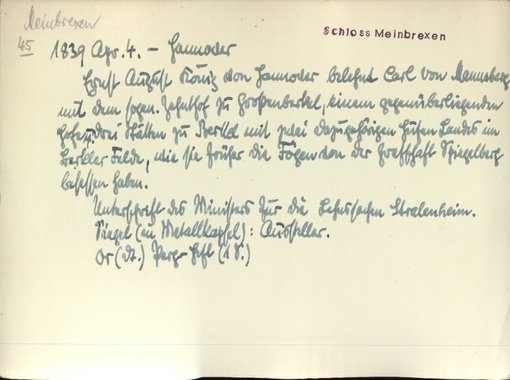 Meinbrexen
45
Schloss Meinbrexen
1839 Apr. 4. – Hannover
Ernst August König von Hannover belehnt Carl von Mansberg
mit dem sogen. Zehnthof zu Großenberkel, einem gegenüberliegenden
Hofe, drei Stätten zu Berkel mit zwei dazugehörigen Hufen Landes im
Berkler Felde, wie sie früher die von der Grafschaft Spiegelberg
besessen haben.
Unterschrift des Ministers für die Lehnssachen Stralenheim.
Siegel (in Metallkapsel): Aussteller.
Or (dt.) Perg. Heft (1 S.)